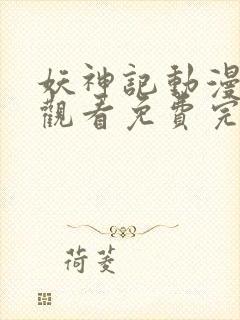 妖神記動漫
觀看免費完
荷菱